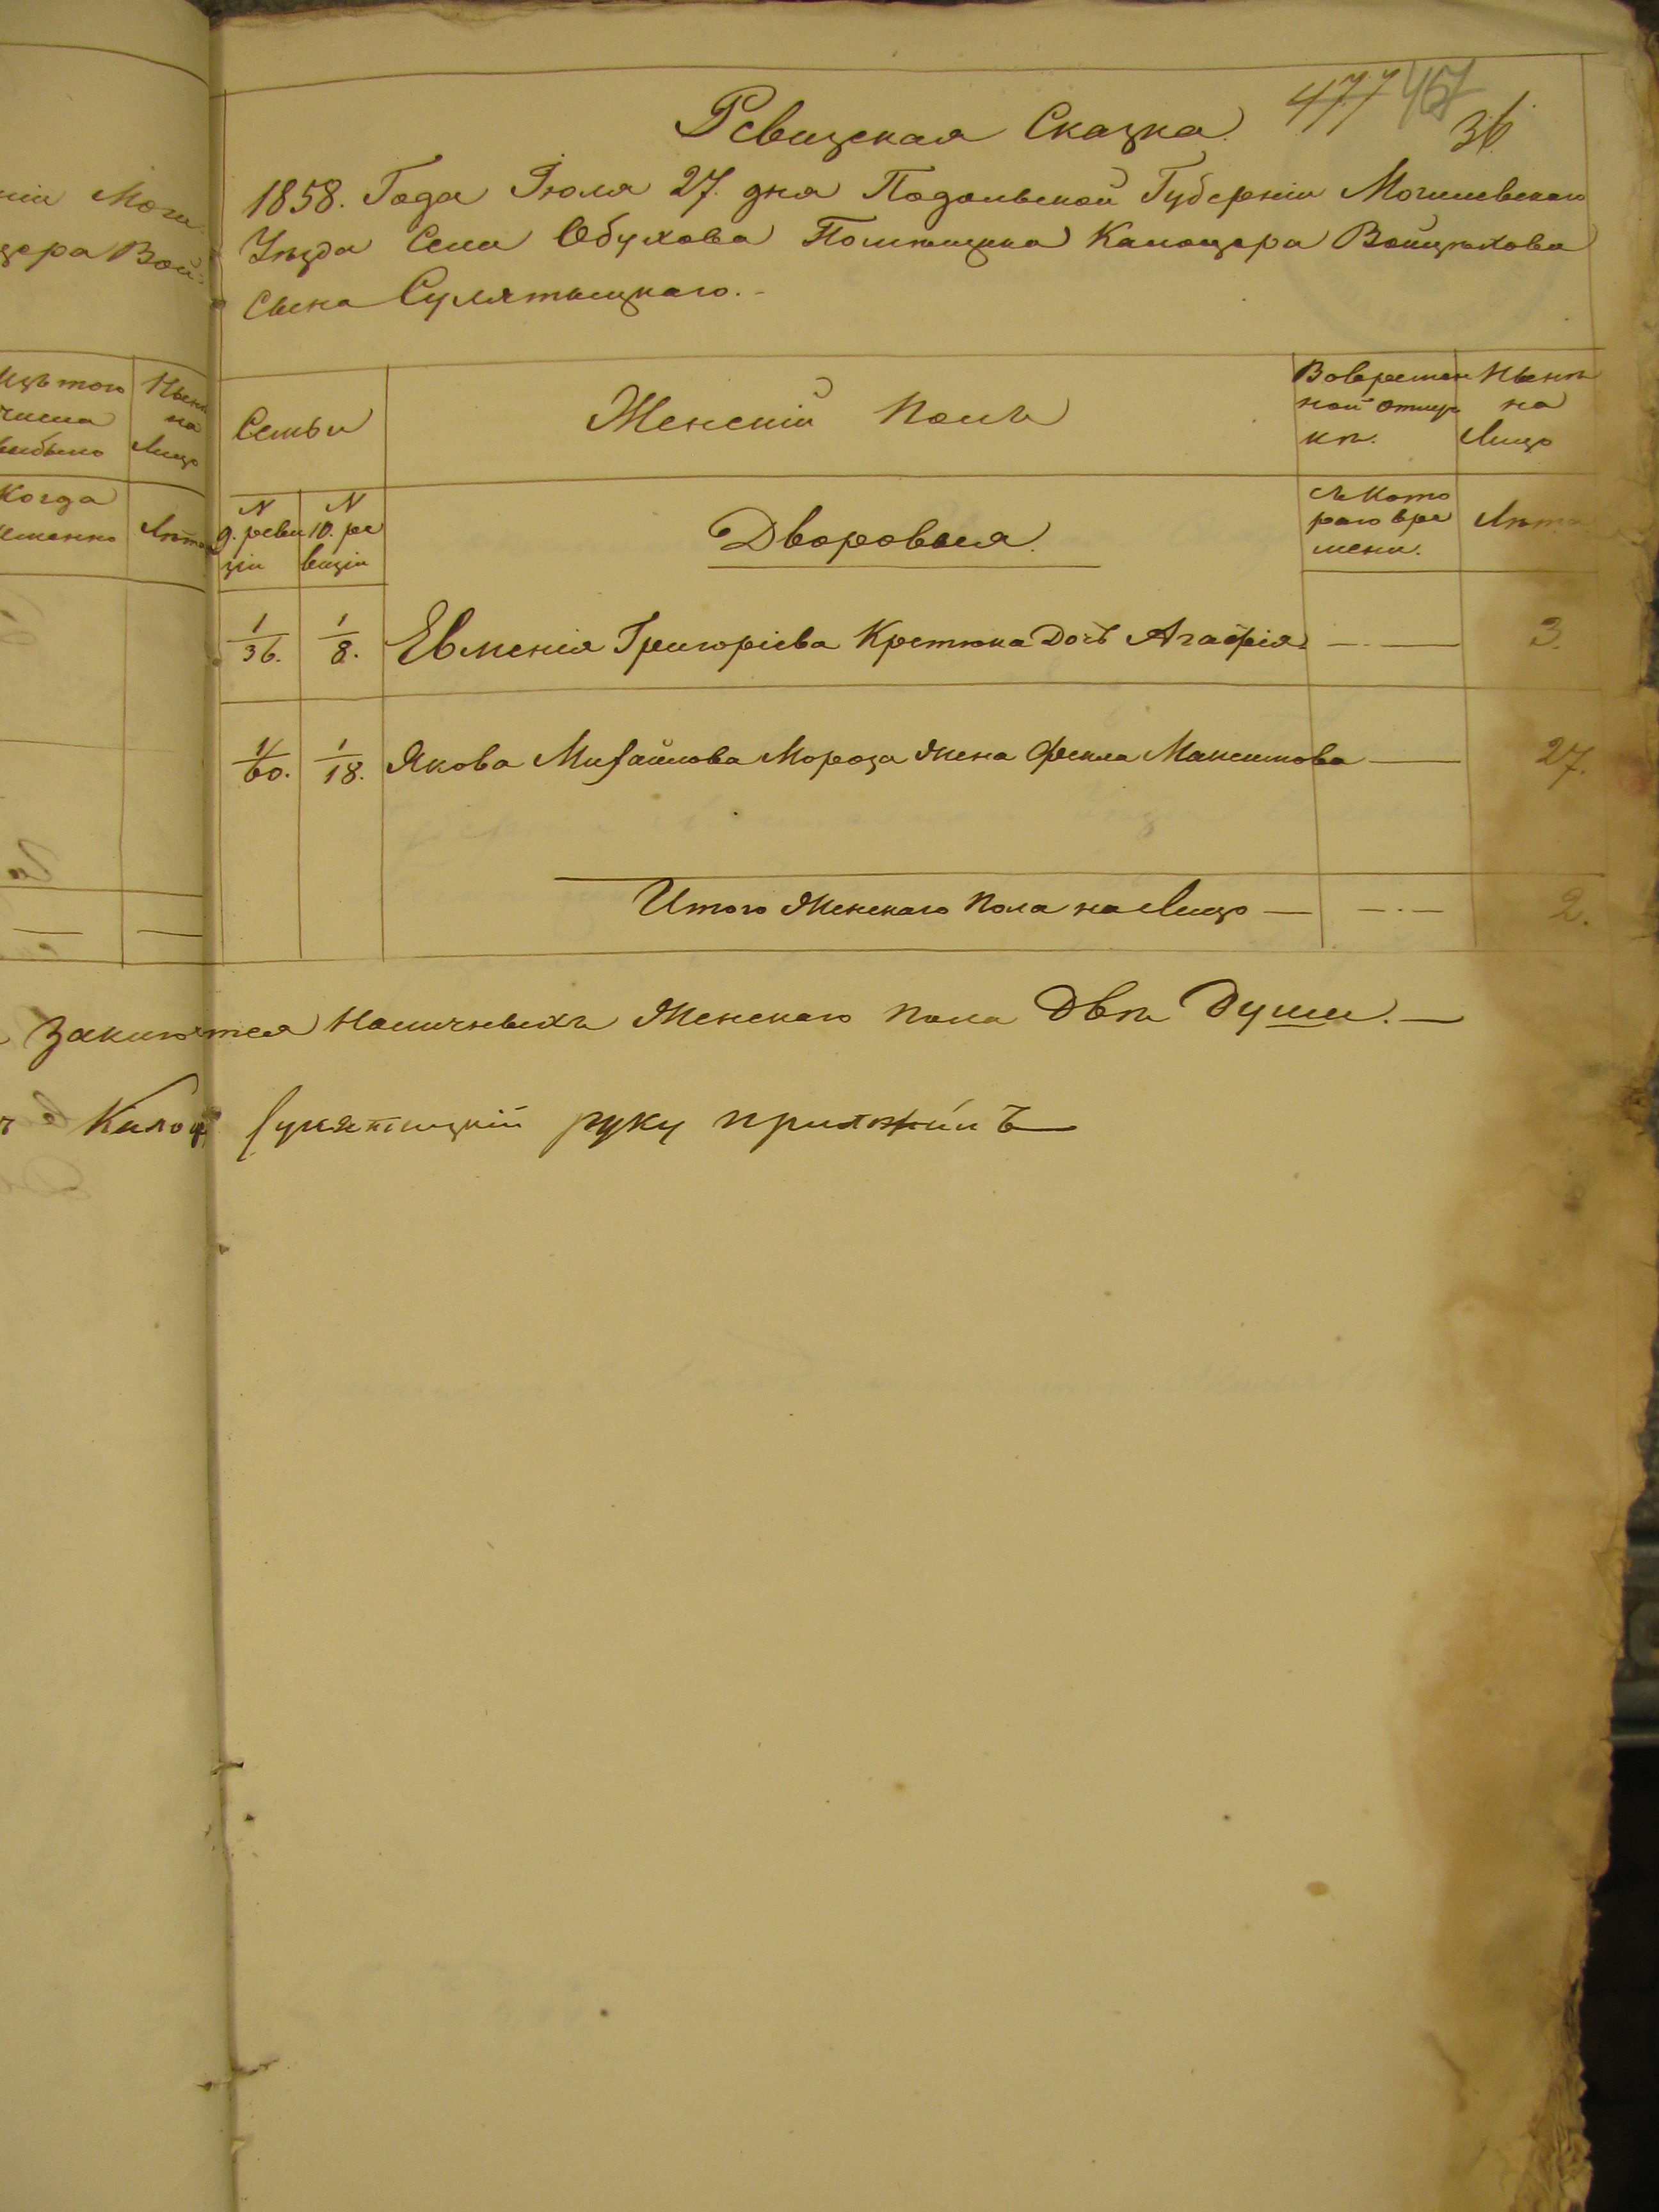 477 467
36
Ревизская Сказка.
1858. Года Іюля 27. дня Подольской Губерніи Могилевскаго
Уѣзда Села Обухова Помѣщика Калоцера Войцѣхова
Сына Сулятыцкаго.-
ніи Моги
цера Вой-
Изъ того числа выбыло
Нынѣ на Лицо
Когда именно
Лѣта
Семьи
Женскій Полъ
Вовремен
ной отлуч
кѣ.
Нынѣ
на
Лицо
N
9. реви
зіи
N
10. ре
визіи
Дворовыя.
съ кото
раго вре
мени.
Лѣта
1/36. 1/8. Евменія Григоріева Кретюка Дочь Агафія — 3.
1/60. 1/18. Якова Михайлова Мороза Жена Фекла Максимова — 27.
Итого Женскаго Пола на Лицо — — · — 2.
Заключается Наличныхъ Женскаго Пола Двѣ Души. —
Калоц Сулятицкій руку приложилъ